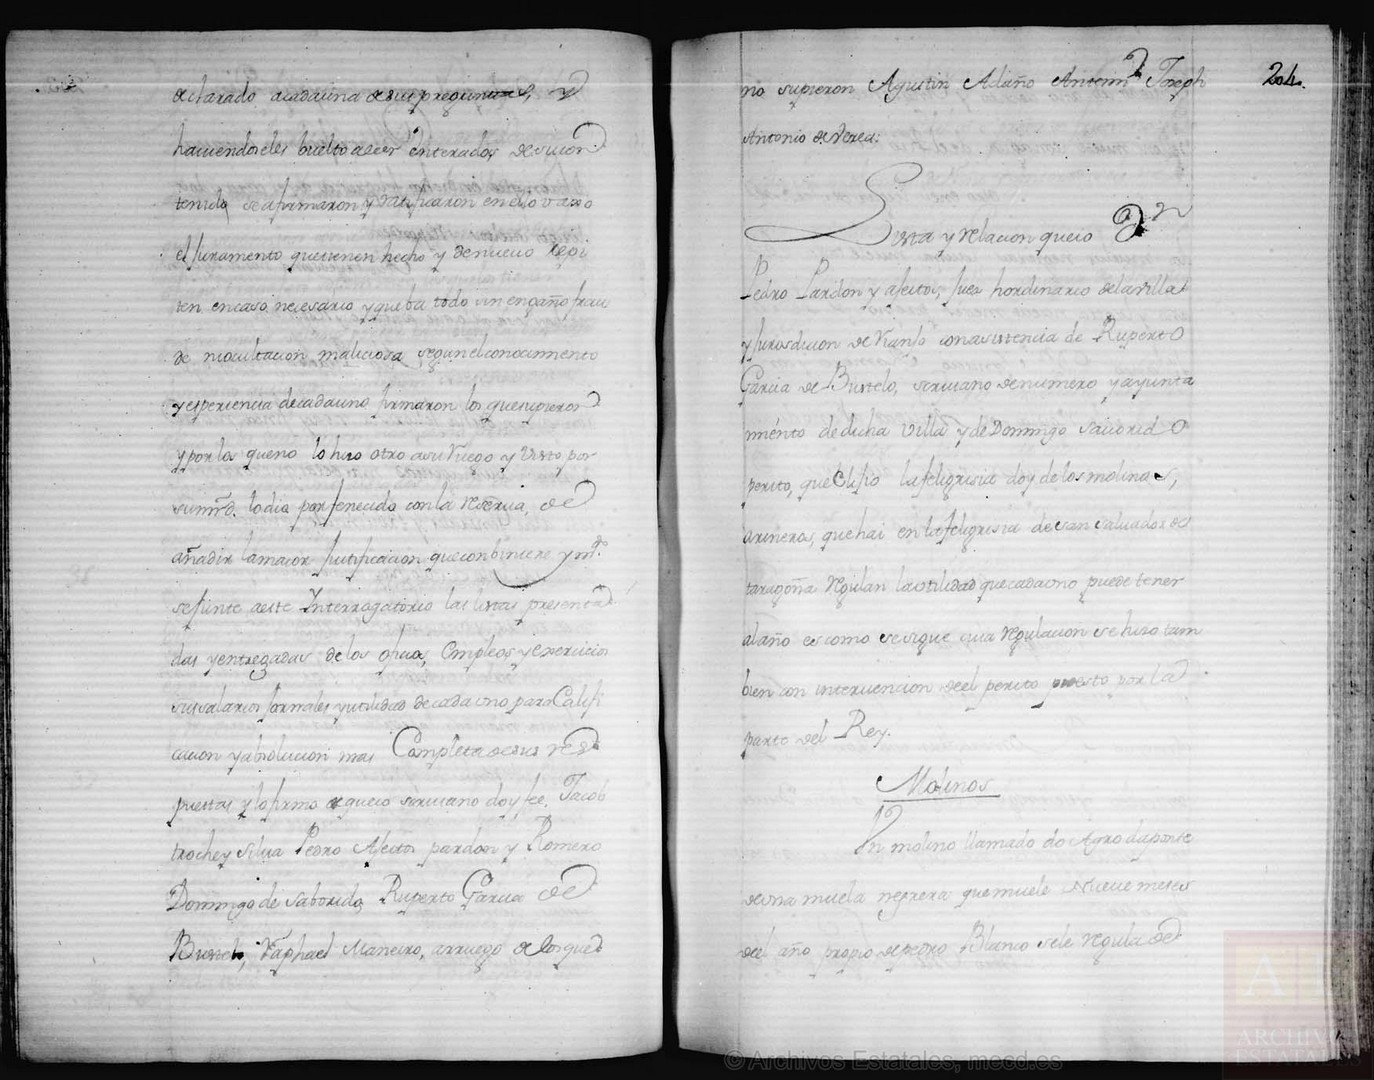 declarado acadauna de sus preguntas, y
haciendoseles buelto aleer enterados desu con
tenido seafirmaron y ratificaron enello vaxo
el Juramento quetienen hecho y denuevo repi
ten encaso necesario yqueba todo sin engaño frau
de niocultacion maliciosa segunelconocimiento
yesperiencia decadauno firmaron los quesupieron
yporlos queno lo hizo otro asu Ruego y Visto por
sumrd. lodio porfenecido con la reserva, de
añadir lamaior justificacion queconbiniere y mdo.
seJunte aeste Interrogatorio las listas presenta
das yentregadas de los oficios, Empleos y exercicios
sus salarios Jornales yutilidad de cada uno para Califi
cacion yabsolucion mas Completa desus res
puestas y lo firmo de queio scriuano doyfee. Jacob
troche y silua Pedro Afectos pardon y Romero
Domingo de Saborido, Ruperto Garcia de
Bustelo, Raphael Maneiro, arruego de losque
no supieron Agustin Adaño Antemi Joseph
Antonio de Nerea:
204.
Lista y relacion queio Dn
Pedro Pardon y afectos, Juez hordinario dela villa
y Jurosdicion de Kanso conasistencia de Ruperto
Garcia de Bustelo, scriuano denumero yayunta
miento dedicha Villa y de Domingo Sauorido
perito, que Elijio la feligrisia doy de los molinos,
arineros, quehai en la feligrisia de san saluador de
taragoña regulan la utilidad quecadauno puede tener
alaño es como sesigue cuia regulacion se hizo tam
bien con interuencion deel perito puesto por la
parte del Rey.
Molinos
Un molino llamado do Agro daponte
deuna muela negrera quemuele Nueue meses
deel año propio de pedro Blanco sele regula de
ARCHIVOS
ESTATALES
© Archivos Estatales, mecd.es